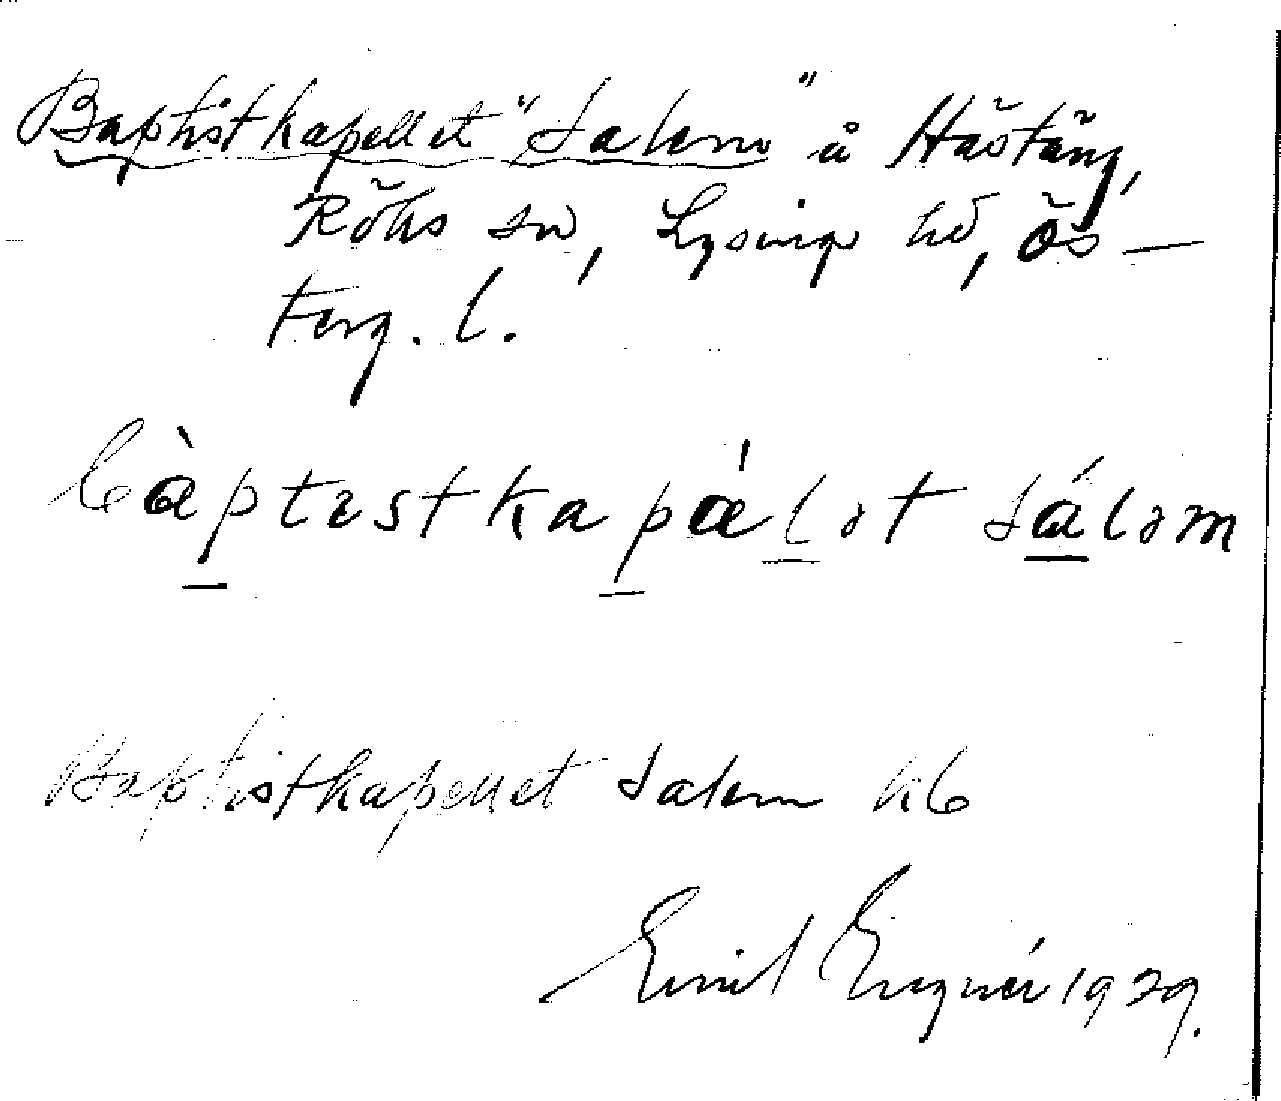 Baptistkapellet "Salem" å Hästång,
Röks sn, Lysings hd, Ös-
terg. l.
bàptɪstkapǽlət sáləm
Baptistkapellet Salem kb
Emil 1929.